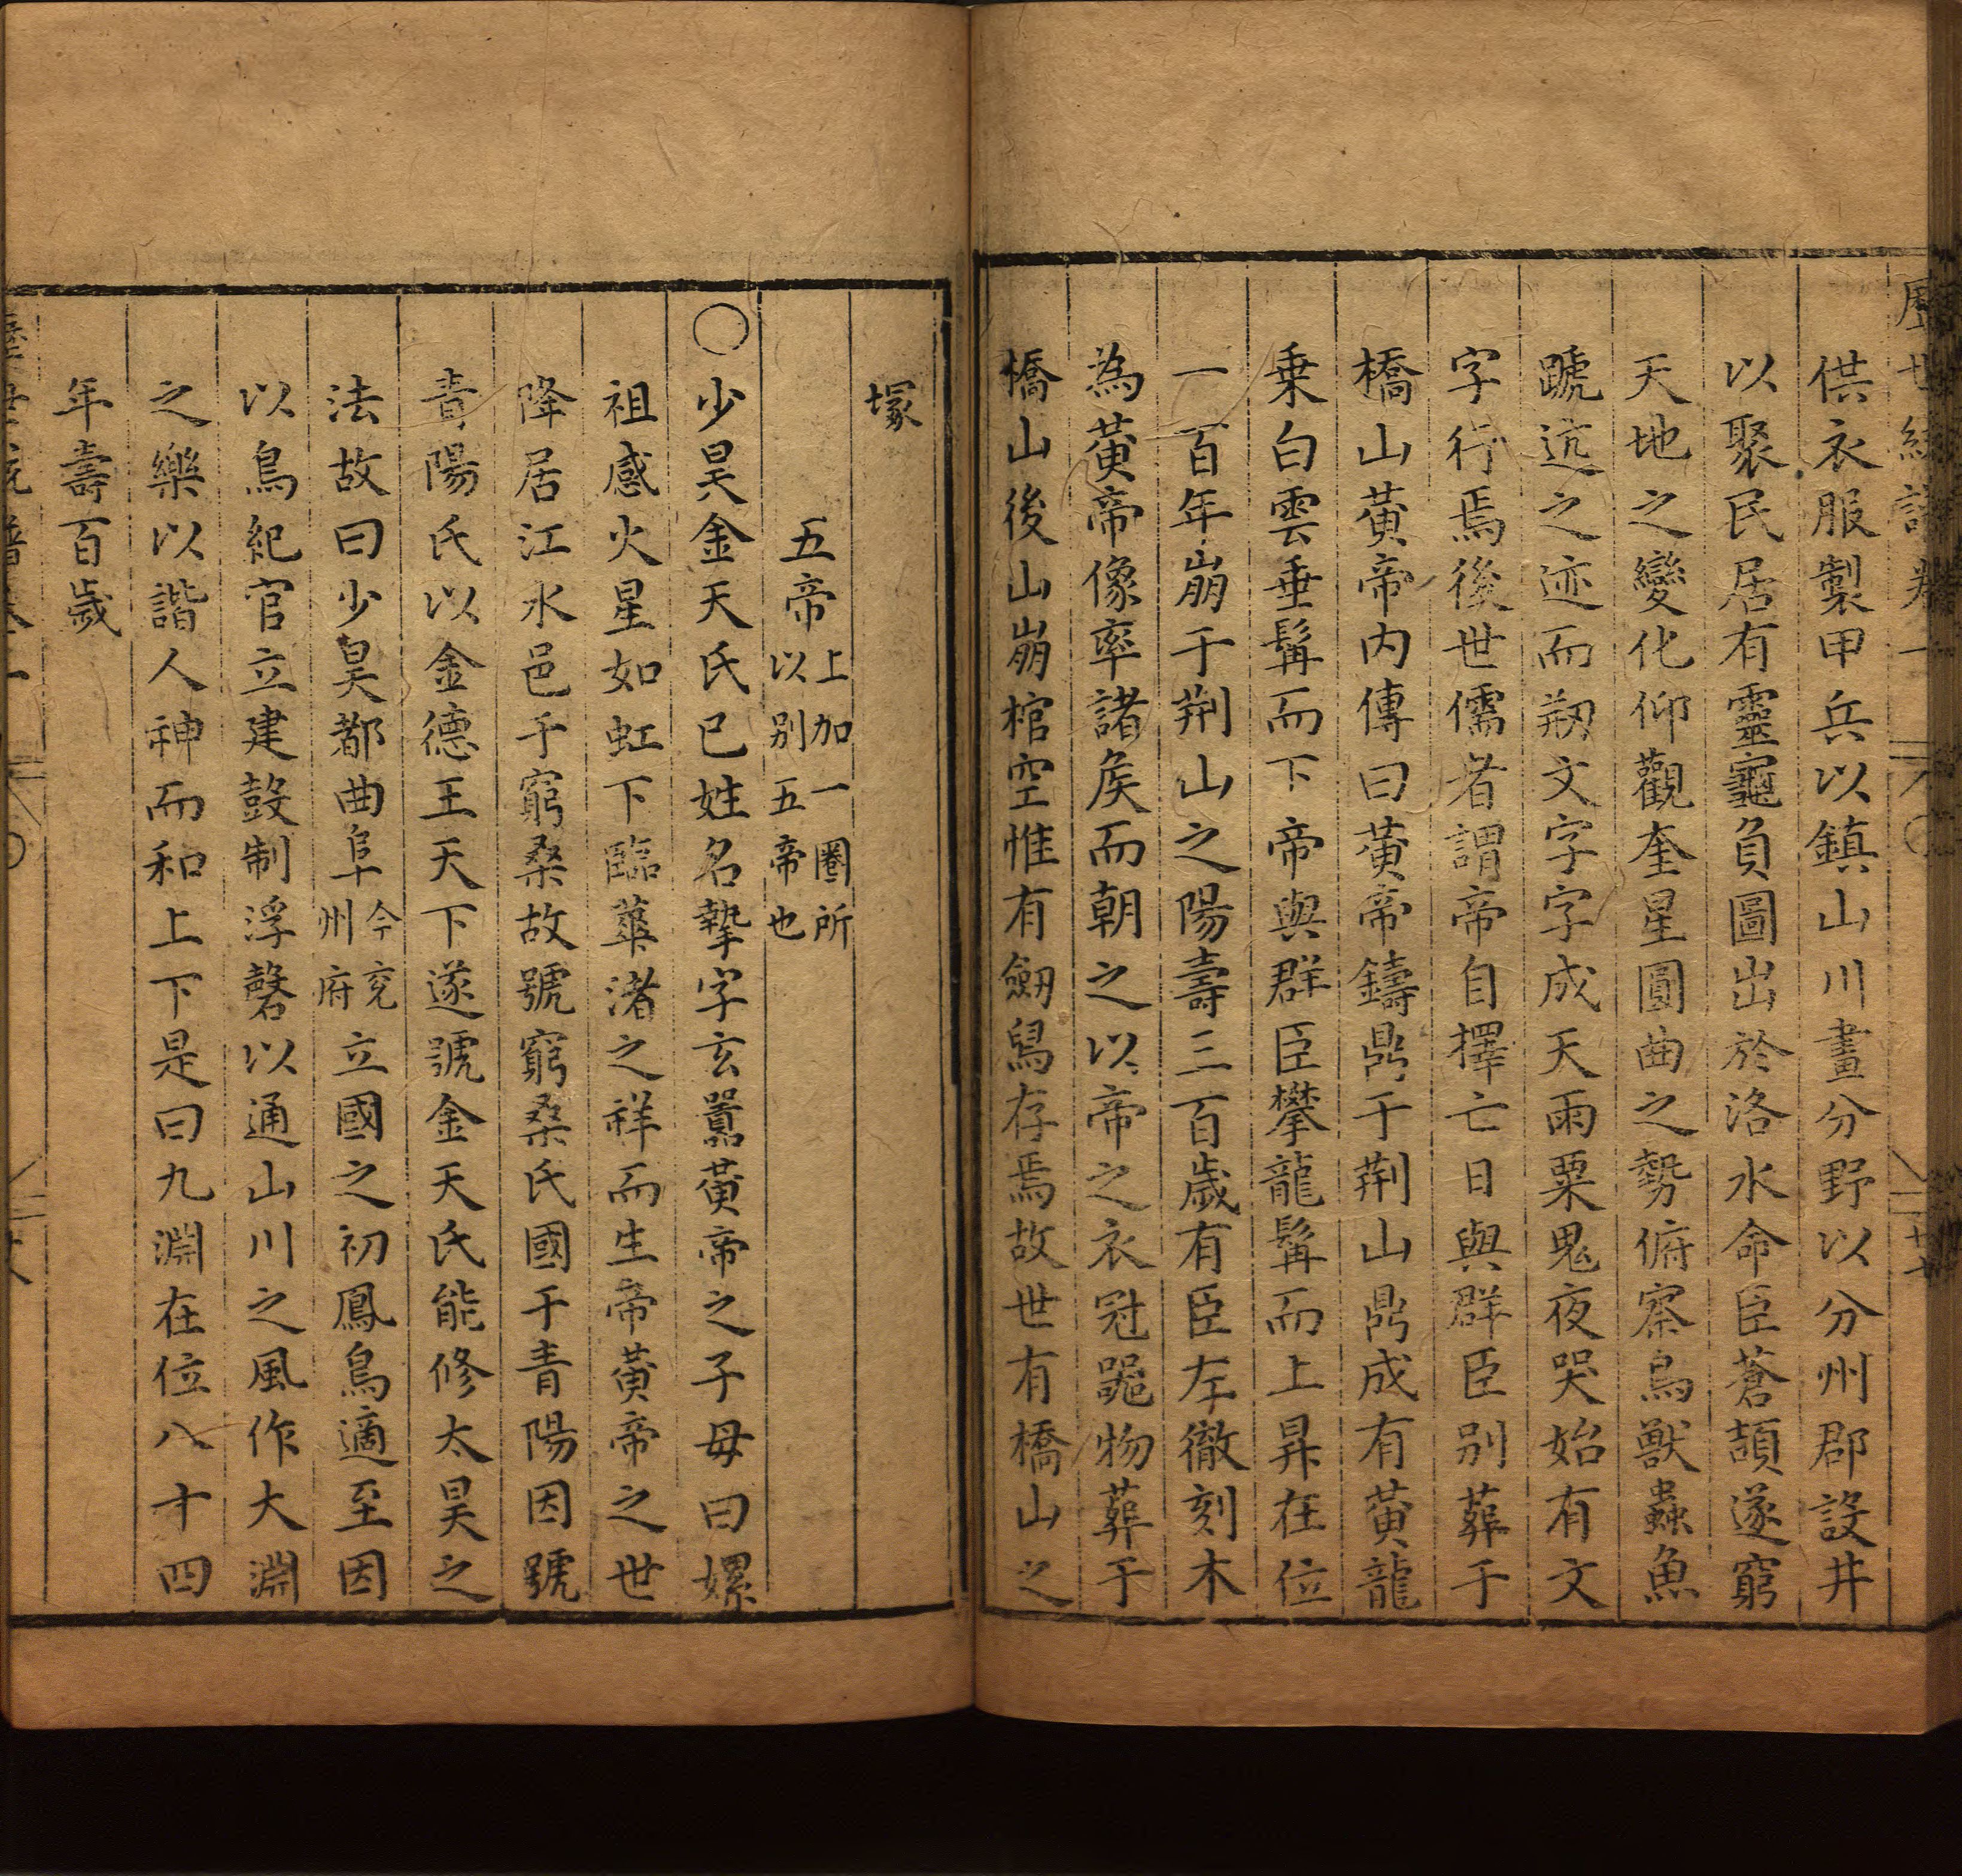 供衣服製甲兵以鎮山川畫分野以分州郡設井
以聚民居有靈龜負圖出於洛水命臣蒼頡遂窮
天地之變化仰觀奎星圓曲之勢俯察鳥獸蟲魚
蹏迒之迹而剏文字字成天雨粟鬼夜哭始有文
字行焉後世儒者謂帝自擇亡日與群臣別葬于
橋山黃帝內傳曰黃帝鑄鼎于荆山鼎成有黃龍
乗白雲垂髯而下帝與群臣攀龍髯而上昇在位
一百年崩于荆山之陽壽三百歲有臣左徹刻木
為黃帝像率諸矦而朝之以帝之衣冠噐物葬于
橋山後山崩棺空惟有劒舄存焉故世有橋山之
塚
五帝上加一圈所以别五帝也
〇少昊金天氏巳姓名摯字玄囂黃帝之子母曰嫘
祖感火星如虹下臨華渚之祥而生帝黃帝之世
降居江水邑于窮桑故號窮桑氏國于青陽因號
青陽氏以金德王天下遂號金天氏能修太昊之
法故曰少昊都曲阜今兖州府立國之初鳳鳥適至因
以鳥紀官立建鼓制浮磬以通山川之風作大淵
之樂以諧人神而和上下是曰九淵在位八十四
年壽百歲